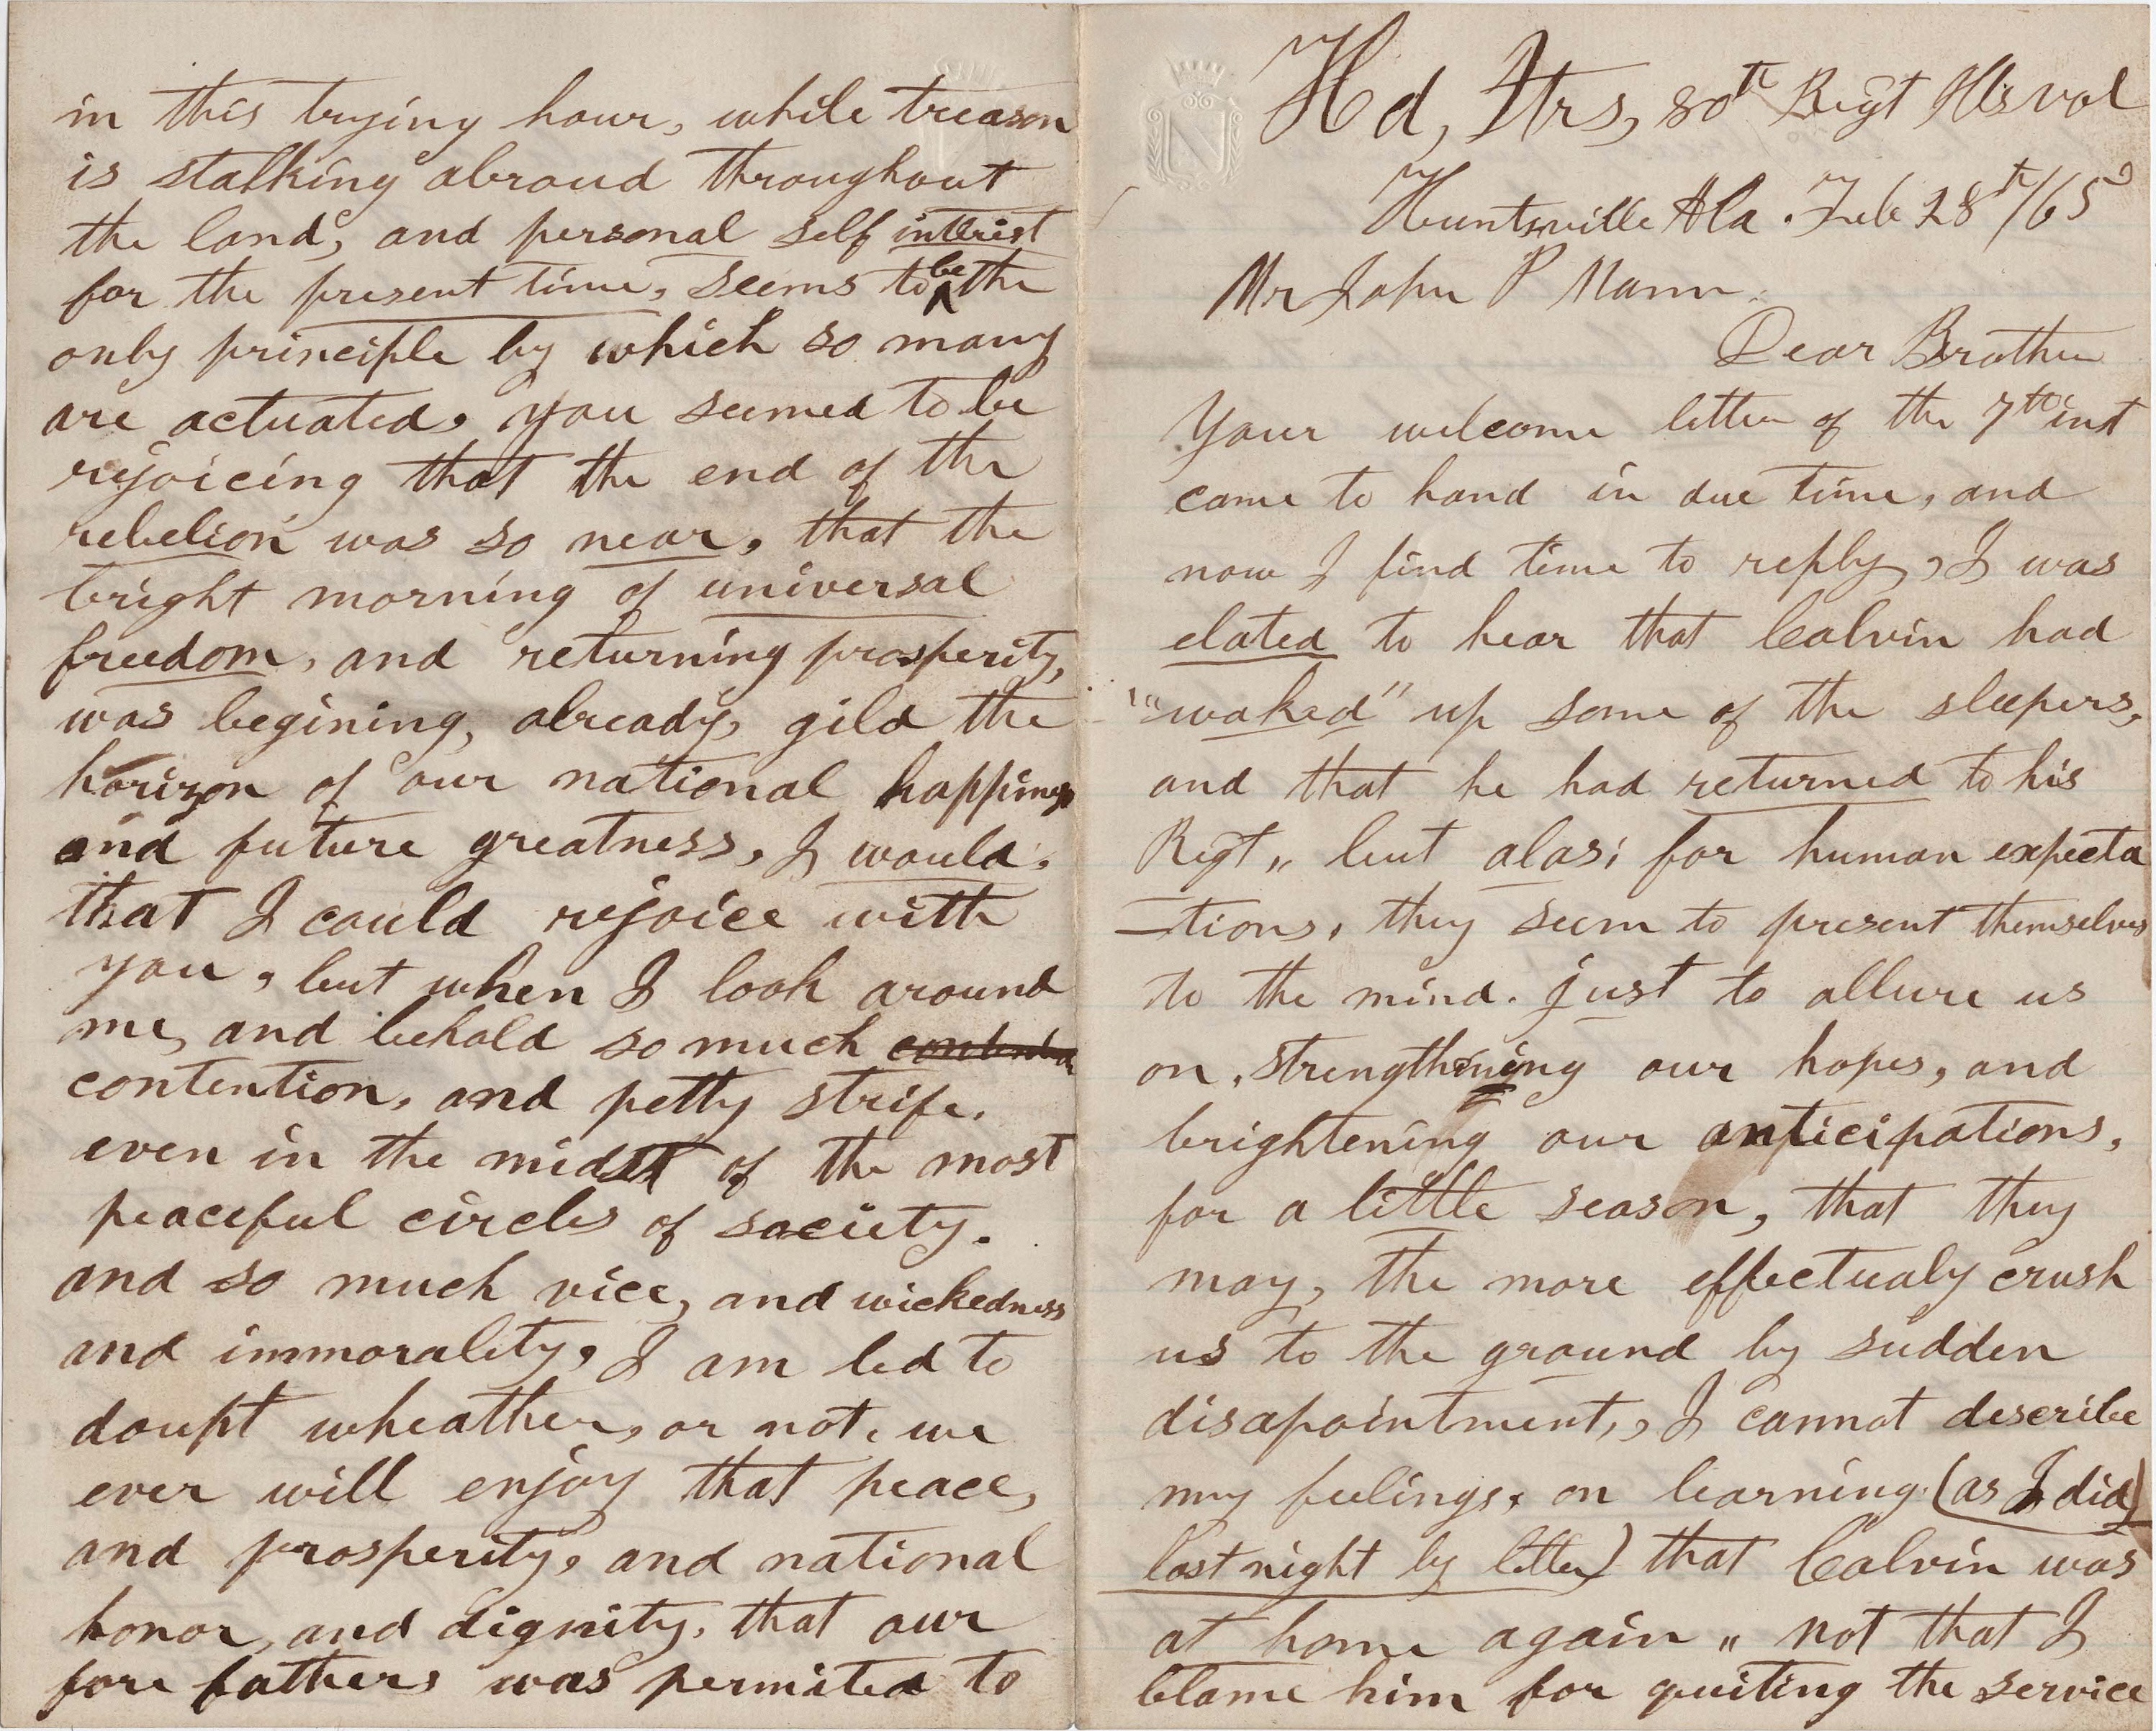 Hd, Qtrs, 80th Regt Ills vol
Huntsville Ala. Feb 28th/65
Mr John P Mann.
Dear Brother
Your welcome letter of the 7th inst
came to hand in due time, and
now I find time to reply, I was
elated to hear that Calvin had
"waked" up some of the sleepers,
and that he had returned to his
Regt,, but alas; for human expecta
-tions, they seem to present themselves
to the mind. just to allure us
on, strengthening our hopes, and
brightening our anticipations,
for a little season, that they
may, the more effectualy crush
us to the ground by sudden
disapointment,, I cannot describe
my feelings, on learning (as I did
last night by letter) that Calvin was
at home again,, not that I
blame him for quiting the service
in this trying hour, while treason
is stalking abroad throughout
the land, and personal self interist
for the present time, seems to be the
only principle by which so many
are actuated, you seemed to be
rejoicing that the end of the
rebelion was so near, that the
bright morning of universal
freedom, and returning prosperity,
was begining, already, gild the
horizon of our national happiness
and future greatness, I would,
that I could rejoice with
you, but when I look around
me, and behold so much
contention, and petty strife.
even in the midst of the most
peaceful circles of society.
and so much vice, and wickedness
and immorality, I am led to
doupt wheather, or not, we
ever will enjoy that peace,
and prosperity, and national
honor, and dignity, that our
fore fathers was permited to